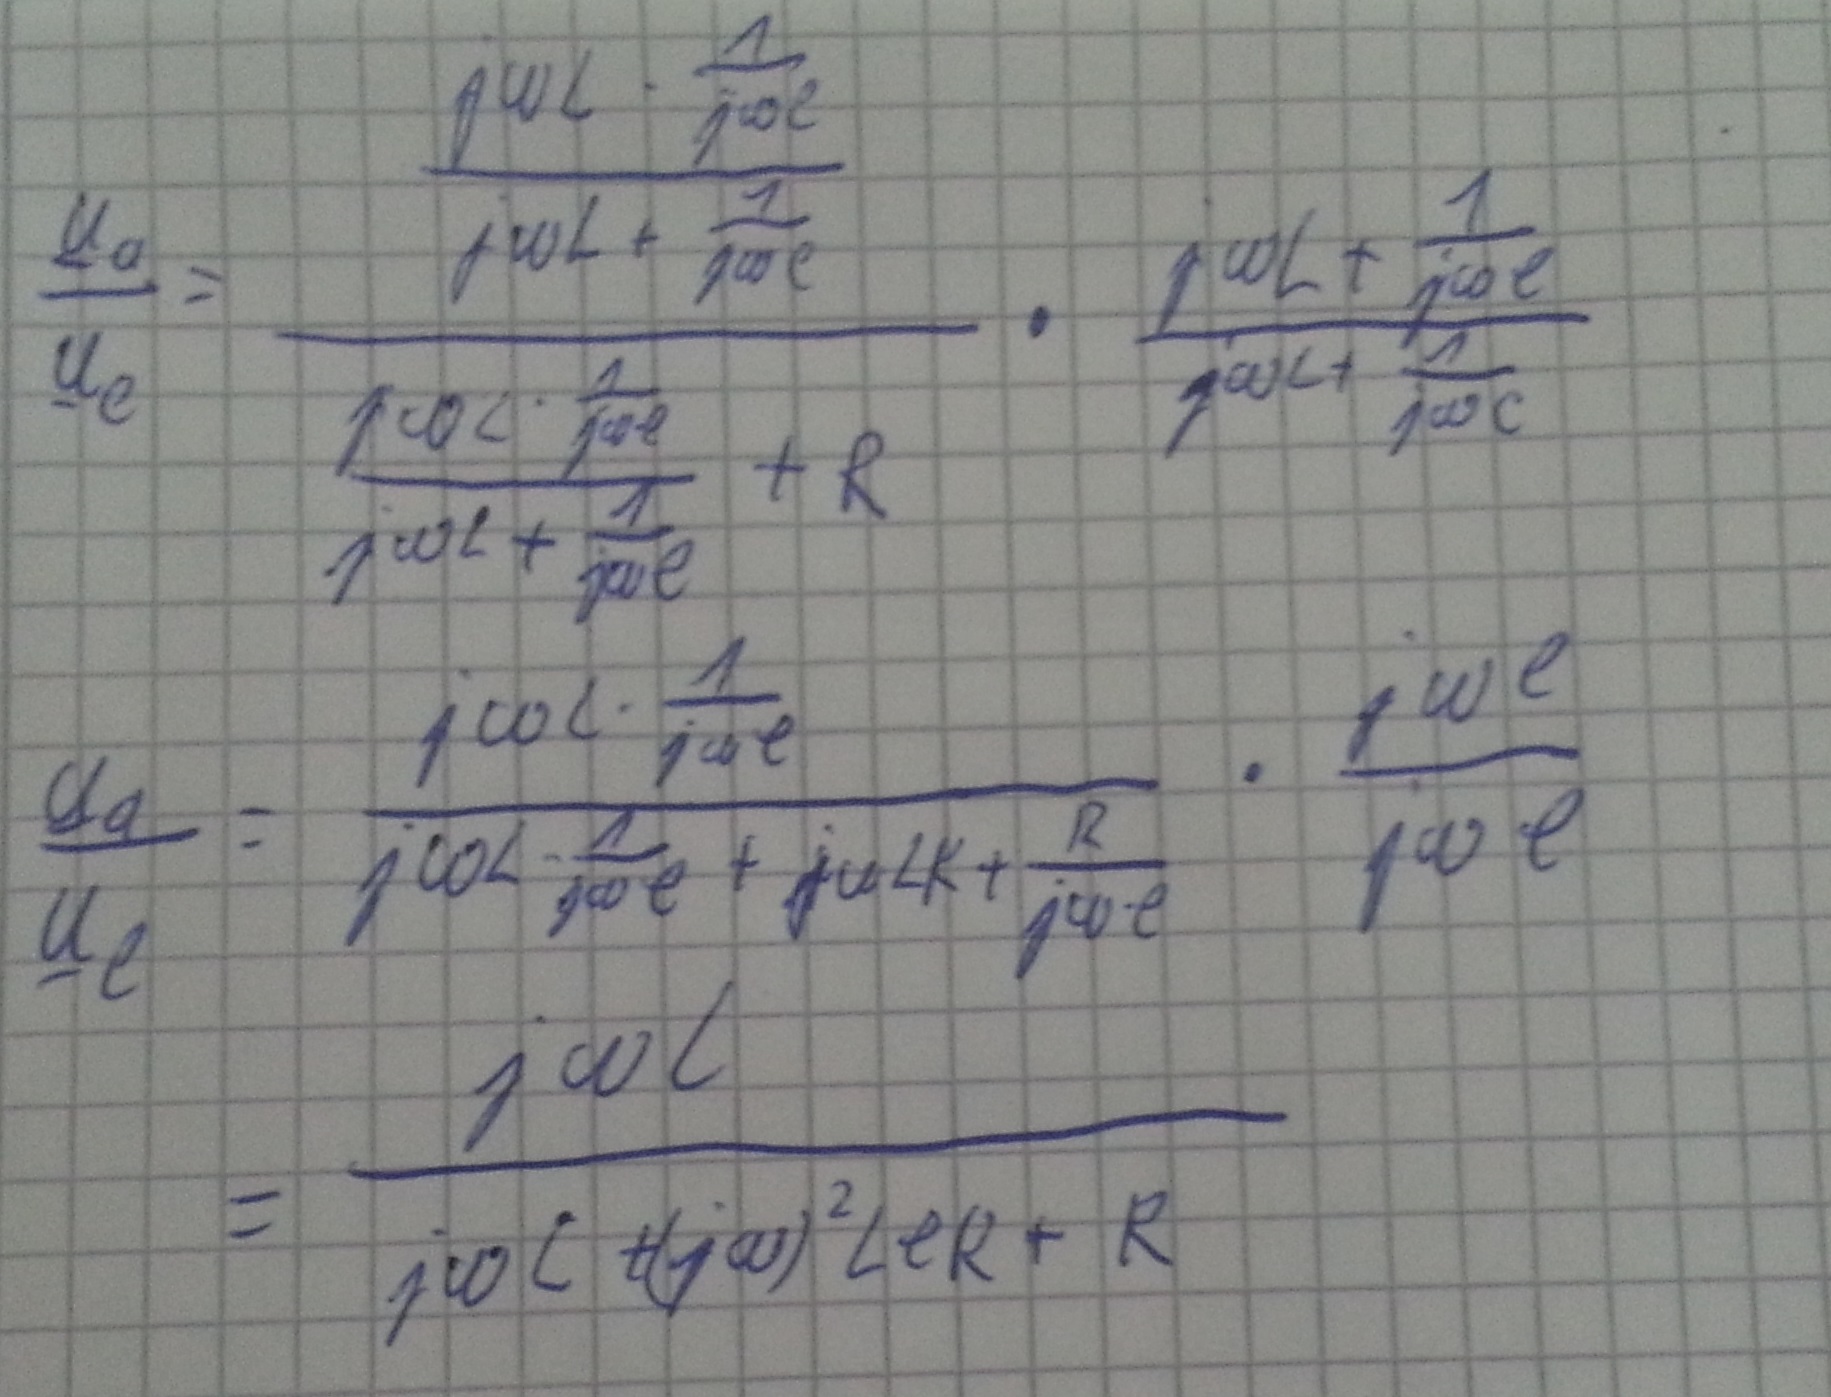 \frac{\underline{u}_a}{\underline{u}_e} = \frac{\frac{jωL · \frac{1}{jωC}}{jωL + \frac{1}{jωC}}}{\frac{jωL · \frac{1}{jωC}}{jωL + \frac{1}{jωC}} + R} · \frac{jωL + \frac{1}{jωC}}{jωL + \frac{1}{jωC}}
\frac{\underline{u}_a}{\underline{u}_e} = \frac{jωL · \frac{1}{jωC}}{jωL · \frac{1}{jωC} + jωLR + \frac{R}{jωC}} · \frac{jωC}{jωC}
= \frac{jωL}{jωL + (jω)^2 LCR + R}